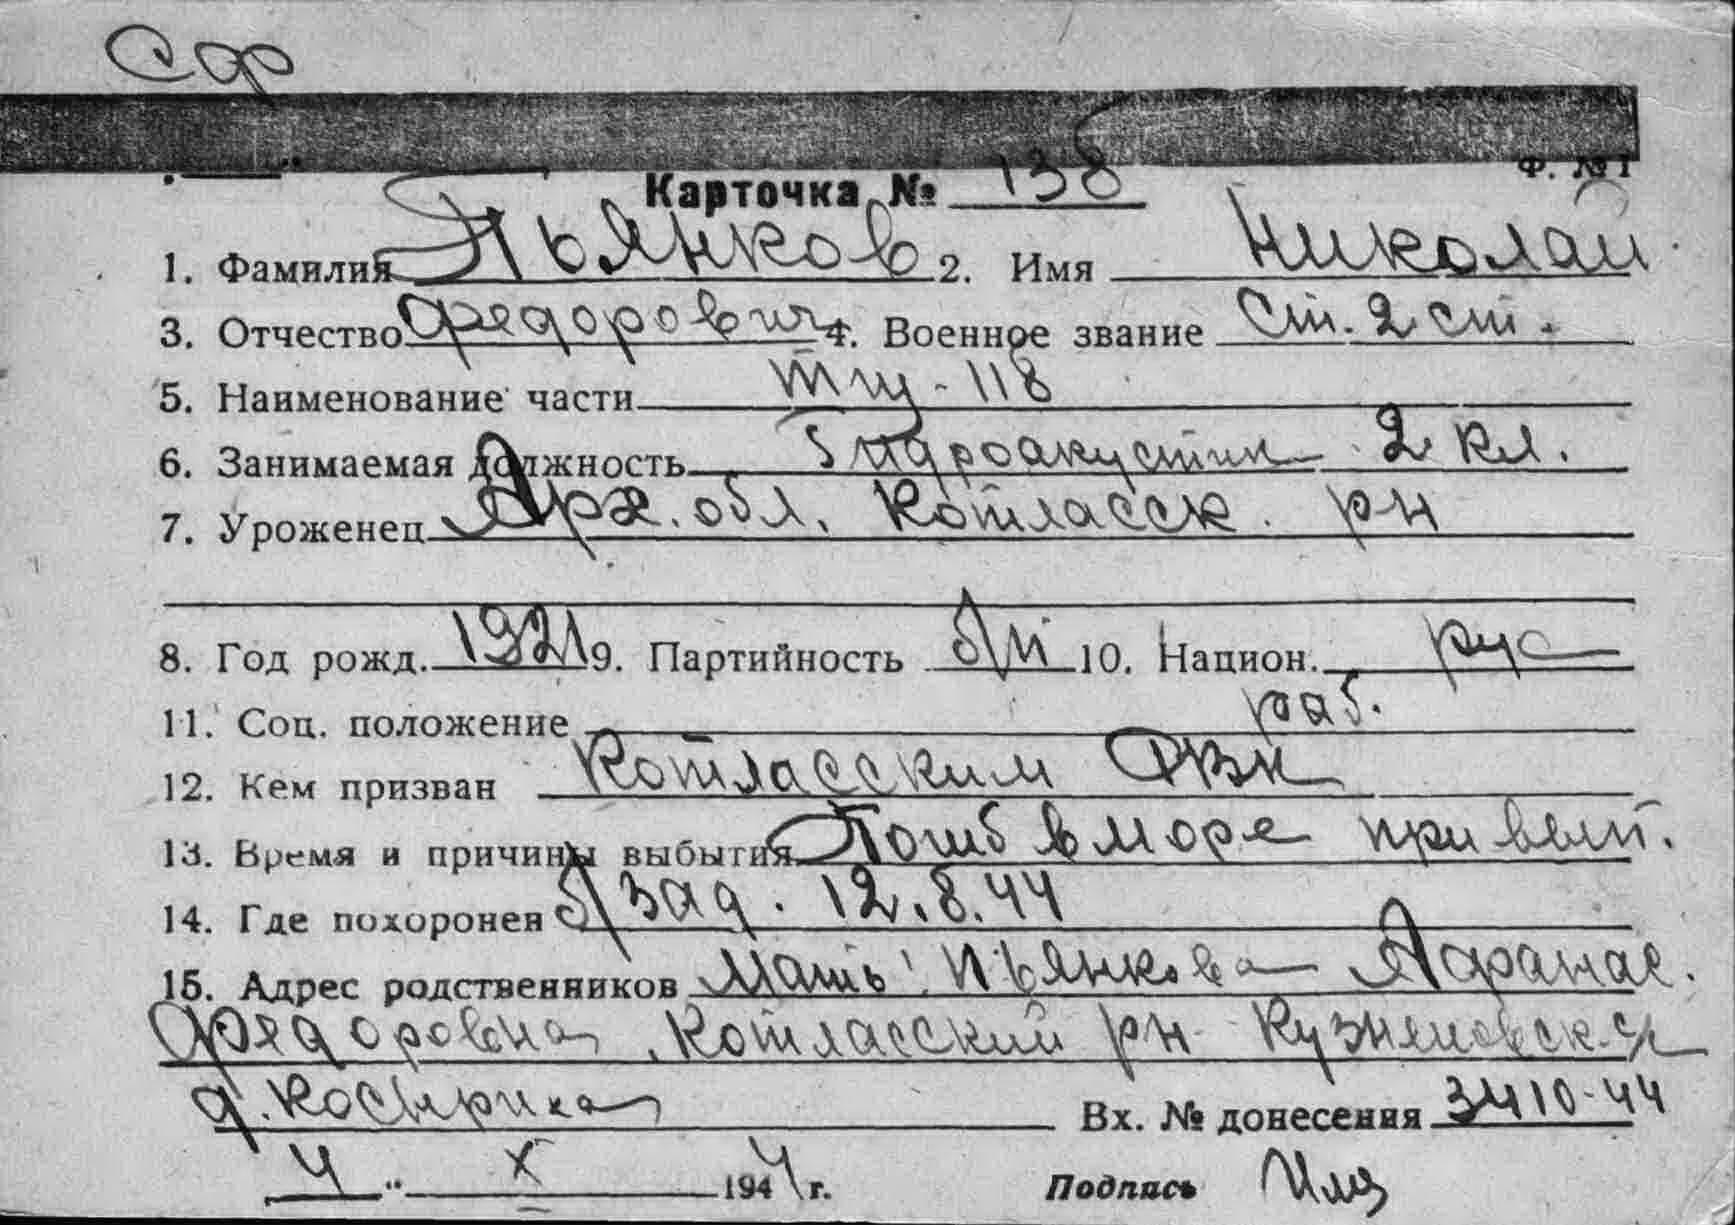 Сф
Ф. № 1
Карточка № 138
1. Фамилия Пьянков 2. Имя Николай
3. Отчество Федорович 4. Военное звание Ст. 2 ст.
5. Наименование части тщ-118
6. Занимаемая должность Гидроакустик 2 кл.
7. Уроженец Арх. обл. Котласск. рн
8. Год рожд. 1921 9. Партийность б/п 10. Национ. рус
11. Соц. положение раб.
12. Кем призван Котласским РВК
13. Время и причины выбытия Погиб в море при вып.
14. Где похоронен б/зад. 12.8.44
15. Адрес родственников Мать: Пьянкова Афанас.
Федоровна, Котласский рн
д.
Вх. № донесения 3410-44
4 " X 1944 г. Подпись